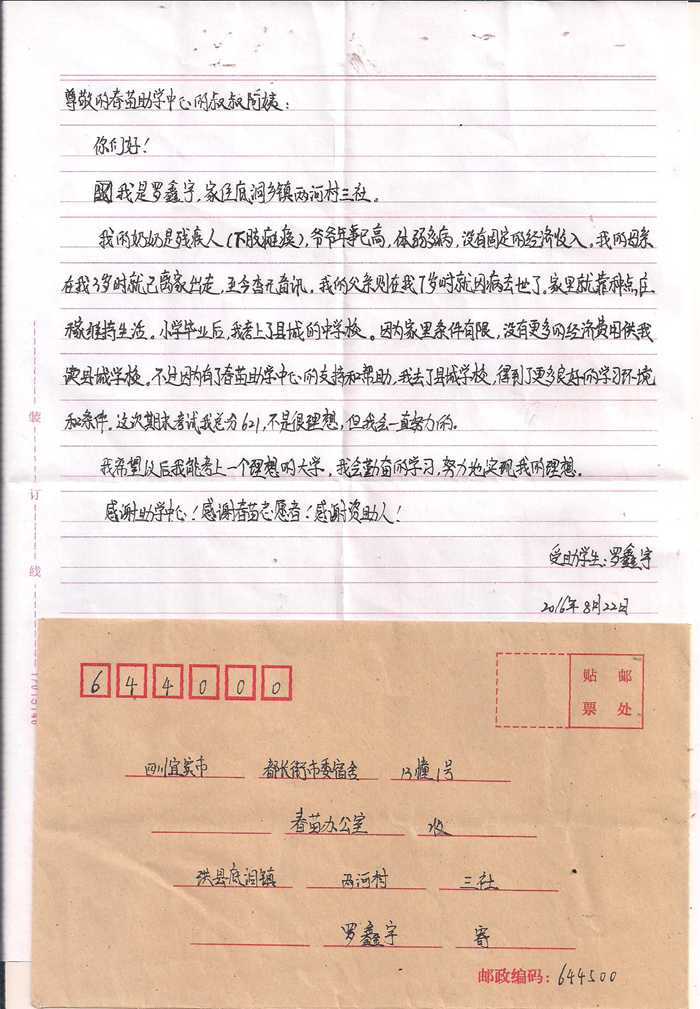 尊敬的春苗助学中心的叔叔阿姨:
你们好!
我是罗鑫宇,家住底洞乡镇两河村三社。
我的奶奶是残疾人(下肢瘫痪),爷爷年事已高,体弱多病,没有固定的经济收入。我的母亲
在我3岁时就已离家出走,至今杳无音讯。我的父亲则在我7岁时就因病去世了。家里就靠种点庄
稼维持生活。小学毕业后,我考上了县城的中学校。因为家里条件有限,没有更多的经济费用供我
读县城学校。不过因为有了春苗助学中心的支持和帮助,我去了县城学校,得到了更多良好的学习环境
和条件。这次期末考试我总分621,不是很理想,但我会一直努力的。
我希望以后我能考上一个理想的大学,我会勤奋的学习,努力地实现我的理想。
感谢助学中心!感谢春苗志愿者!感谢资助人!
受助学生:罗鑫宇
2016年8月22日
装
订
线
644000
贴 邮
票 处
四川宜宾市 都长街市委宿舍 13幢1号
春苗办公室 收
珙县底洞镇 两河村 三社
罗鑫宇 寄
邮政编码:644500